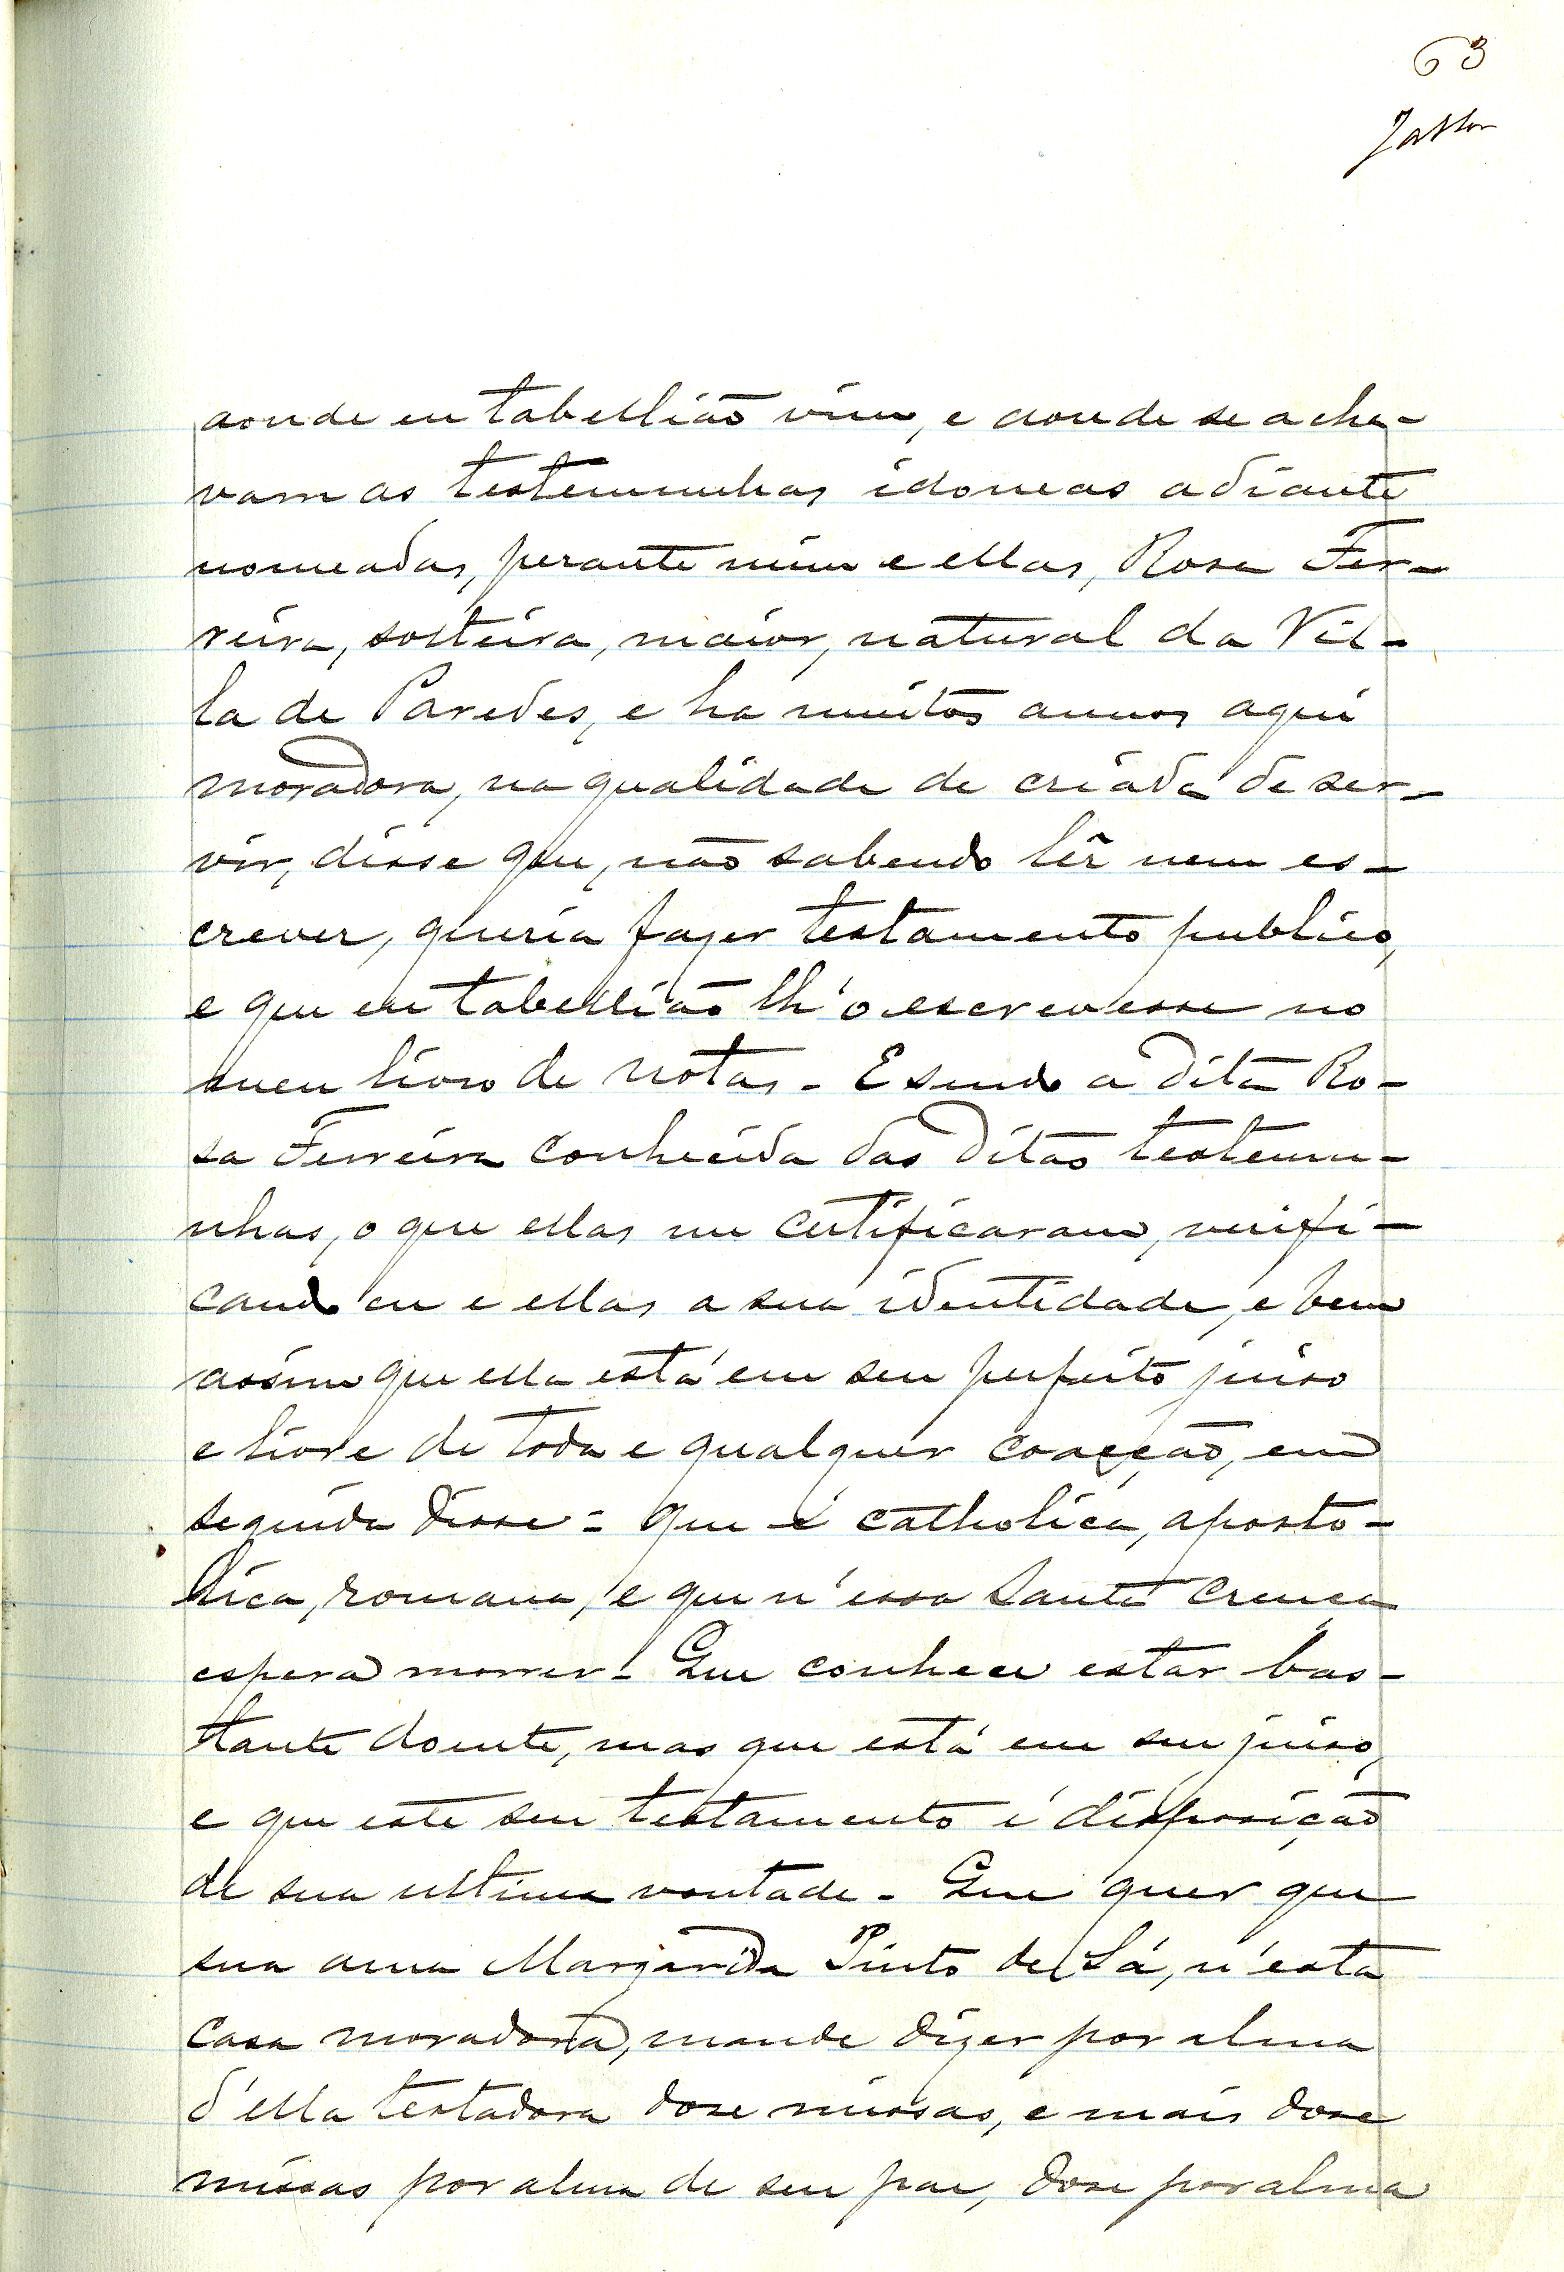 63
aonde eu tabellião vim, e aonde se acha-
vam as testemunhas idoneas adiante
nomeadas, perante mim e ellas, Rosa Fer-
reira, solteira, maior, natural da Vil-
la de Paredes, e ha muitos annos aqui
moradora, na qualidade de criada de ser-
vir, disse que, não sabendo lêr nem es-
crever, queria fazer testamento publico,
e que eu tabellião lh'o escrevesse no
meu livro de notas - E sendo a dita Ro-
sa Ferreira conhecida das ditas testemu-
nhas, o que ellas me certificaram, verifi-
cando eu e ellas a sua identidade, e bem
assim que ella está em seu perfeito juiso
e livre de toda e qualquer coacção, em
seguida disse = que é catholica, aposto-
lica, romana, e que n'essa Santa crença
espera morrer - Que conhece estar bas-
tante doente, mas que está em seu juiso,
e que este seu testamento é disposição
de sua ultima vontade - Que quer que
sua ama Margarida Pinto de Sá, n'esta
casa moradora, mande dizer por alma
d'ella testadora dose missas, e mais dose
missas por alma de seu pae, dose por alma